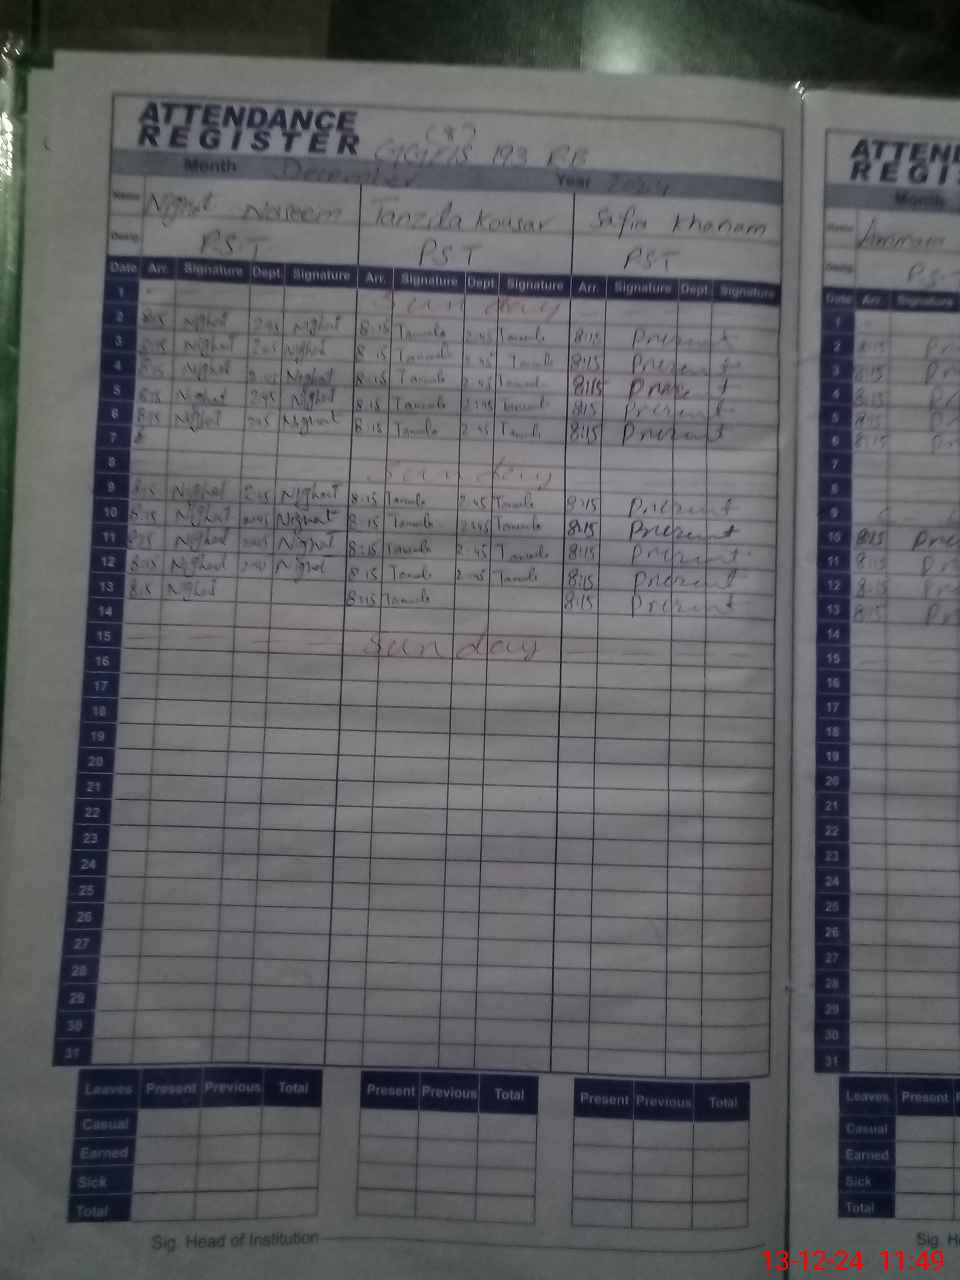 ATTENDANCE
REGISTER
193 RB
Month December Year 2024
Name Nighat Nasreem Tanzila Kousar Safia Khanam
Desig. PST PST PST
Date Arr. Signature Dept. Signature Arr. Signature Dept. Signature Arr. Signature Dept. Signature
1 Sunday
2 8:15 Nighat 2:45 Nighat 8:15 2:45 8:15 Present
3 8:15 Nighat 2:45 Nighat 8:15 2:45 8:15 Present
4 8:15 Nighat 2:45 Nighat 8:15 2:45 8:15 Present
5 8:15 Nighat 2:45 Nighat 8:15 2:45 8:15 Present
6 8:15 Nighat 2:45 Nighat 8:15 2:45 8:15 Present
7
8 Sunday
9 8:15 Nighat 2:45 Nighat 8:15 2:45 8:15 Present
10 8:15 Nighat 2:45 Nighat 8:15 2:45 8:15 Present
11 8:15 Nighat 2:45 Nighat 8:15 2:45 8:15 Present
12 8:15 Nighat Nighat 8:15 2:45 8:15 Present
13 8:15 Nighat 8:15 8:15 Present
14
15 Sunday
16
17
18
19
20
21
22
23
24
25
26
27
28
29
30
31
Leaves Present Previous Total Present Previous Total Present Previous Total
Casual
Earned
Sick
Total
Sig. Head of Institution
ATTEN
REGIS
Month
Name Ammara
Desig. PST
Date Arr. Signature
1
2 8:15
3 8:15
4 8:15
5 8:15
6 8:15
7
8
9
10 8:15
11 8:15
12 8:15
13 8:15
14
15
16
17
18
19
20
21
22
23
24
25
26
27
28
29
30
31
Leaves Present
Casual
Earned
Sick
Total
Sig. H
13-12-24 11:49